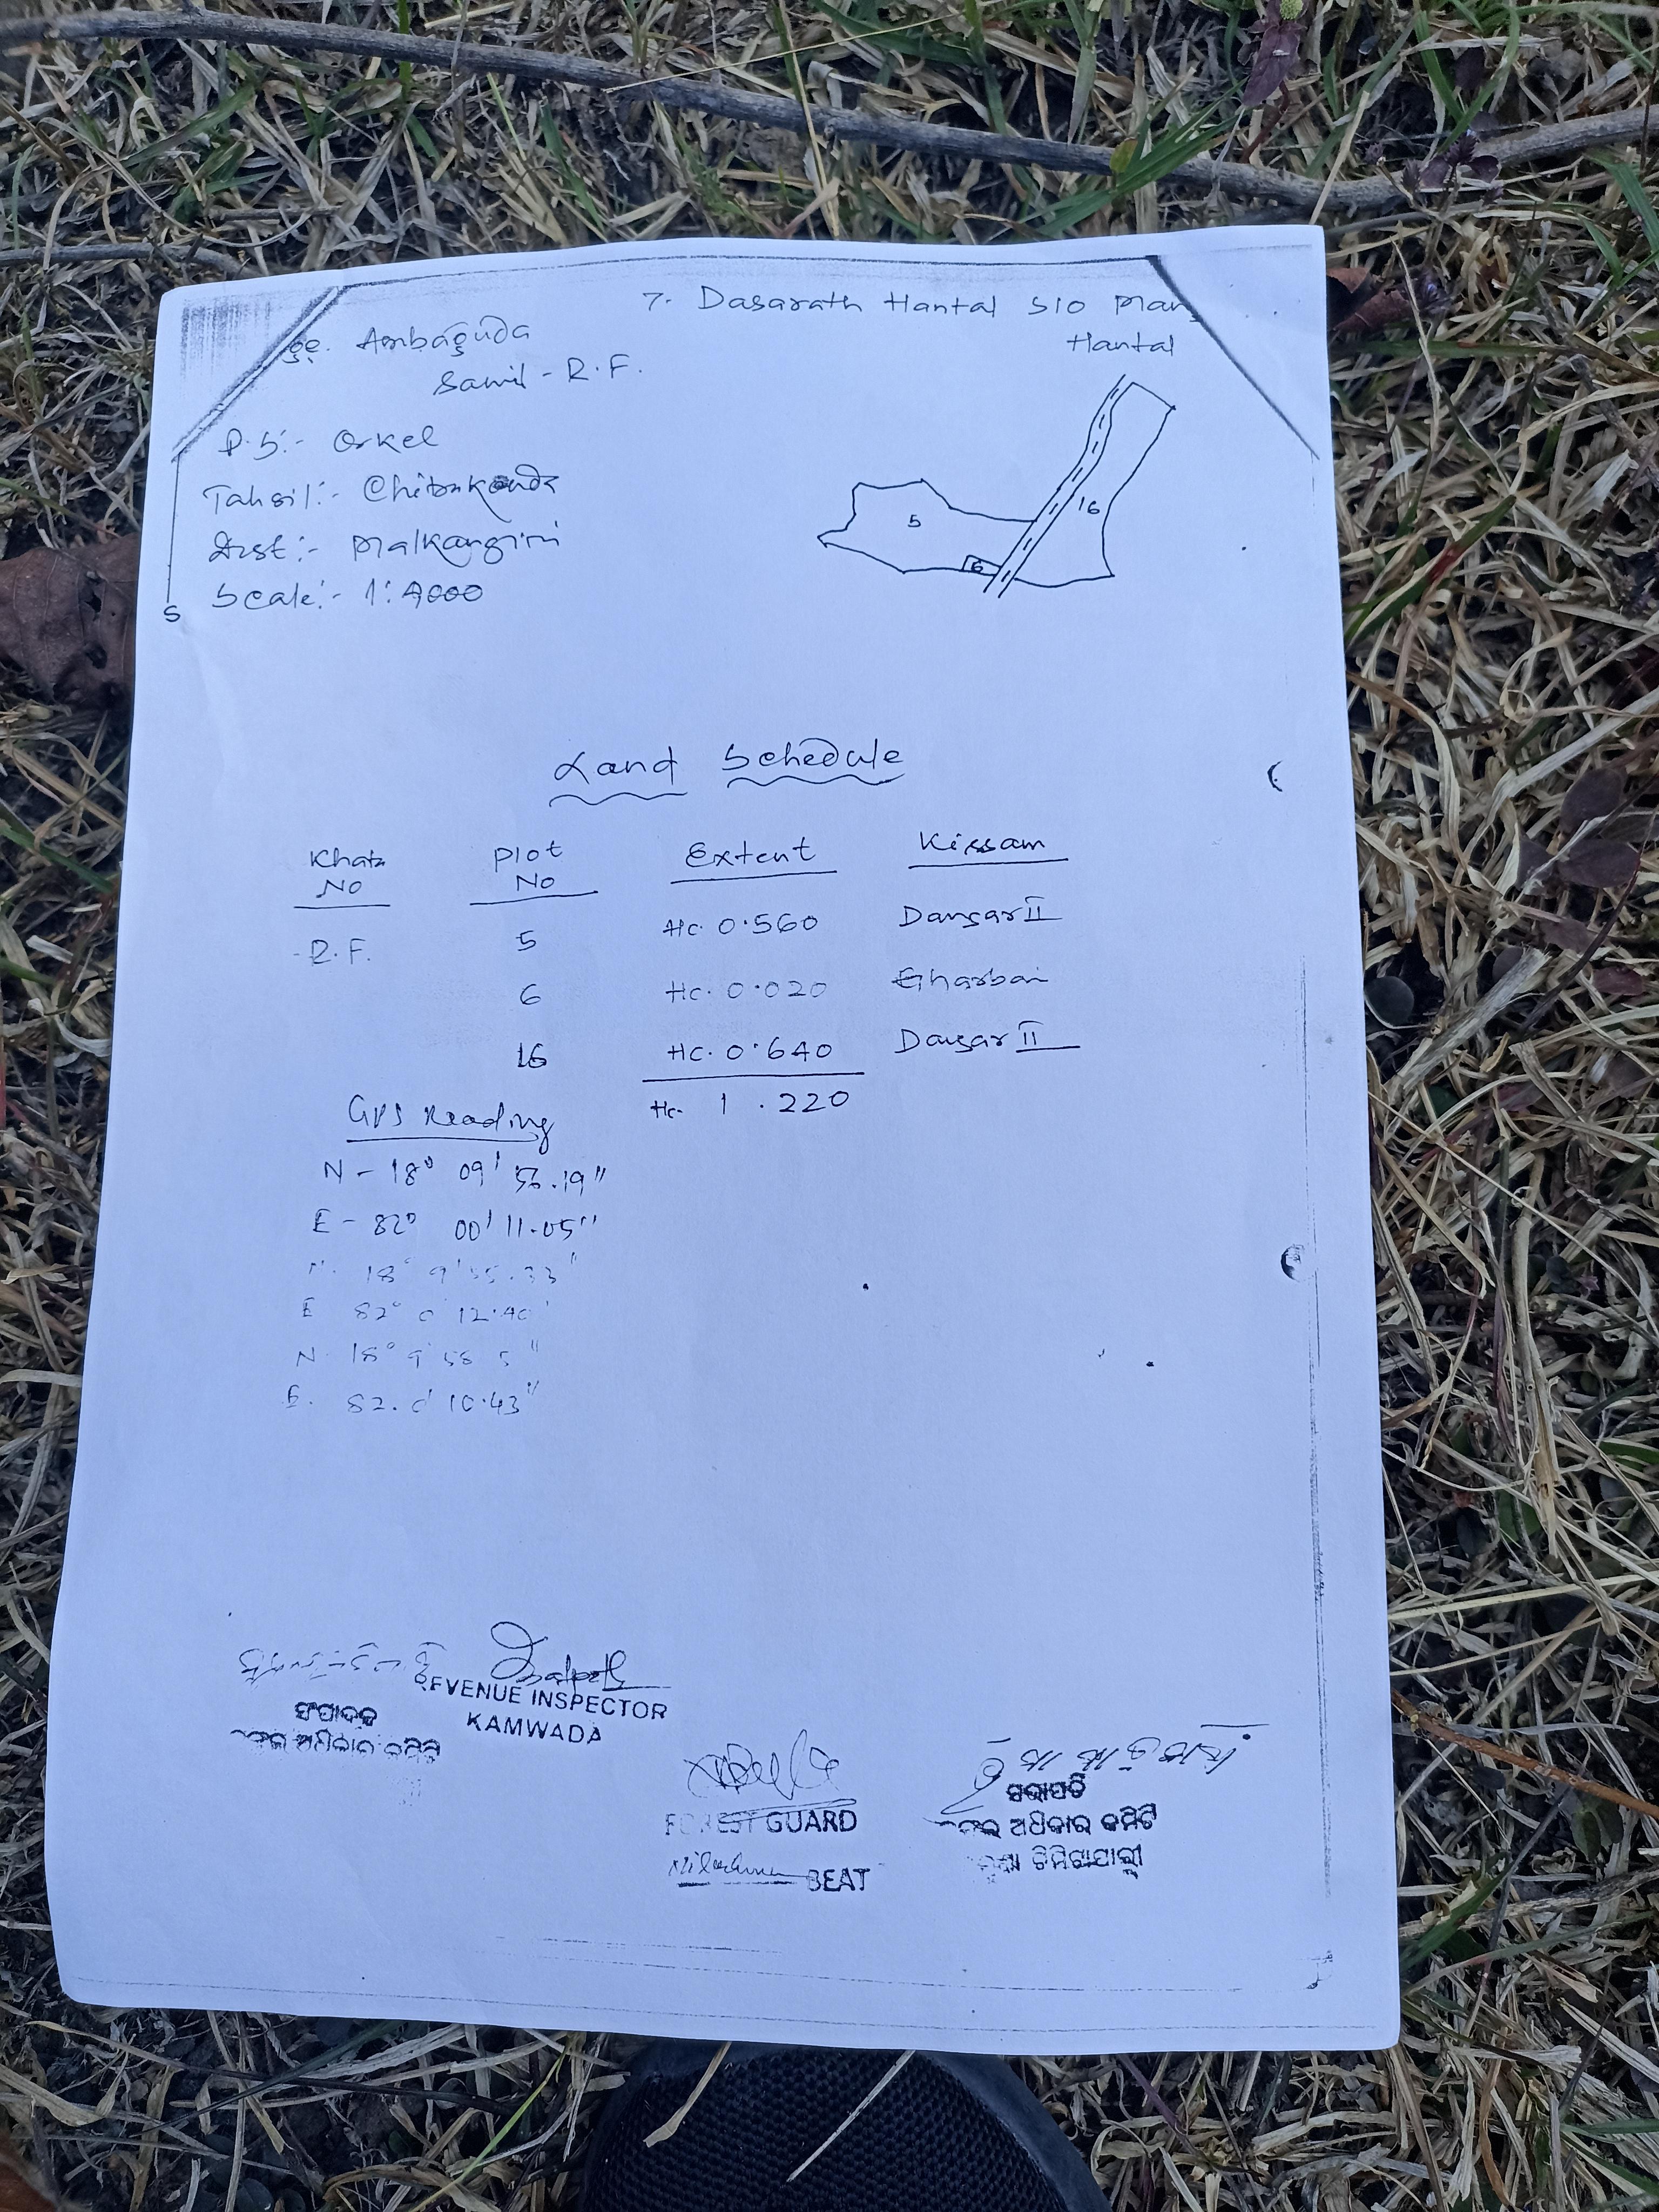 7. Dasarath Hantal S/O Mang
Hantal
ge. Ambaguda
Samil - R.F.
P.S:- Orkel
Tahsil:- Chitrakonda
Dist:- Malkangiri
Scale:- 1:4000
S
5
16
6
Land Schedule
Khata No
Plot No
Extent
Kissam
R.F.
5
Hc. 0.560
Dangar II
6
Hc. 0.020
Gharbari
16
Hc. 0.640
Dangar II
Hc. 1.220
GPS Reading
N - 18° 09' .19"
E - 82° 00' 11.05"
N. 18° 9' 55.33"
E 82° 0' 12.40"
N. 18° 9' 58.5"
E. 82. 0' 10.43"
REVENUE INSPECTOR
KAMWADA
ସଂପାଦକ
ଅଧିକାର କମିଟି
FOREST GUARD
BEAT
ସଭାପତି
ଅଧିକାର କମିଟି